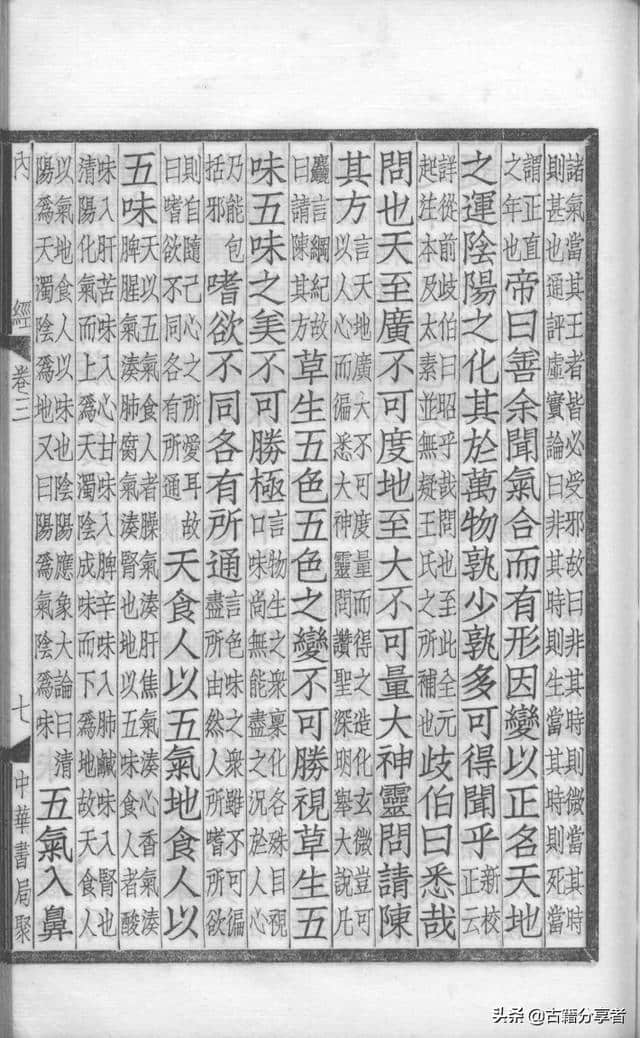 諸氣當其王者皆必受邪故曰非其時則微當其時
則甚也通評虛實論曰非其時則生當其時則死當其
謂正直
之年也
帝曰善余聞氣合而有形因變以正名天地
之運陰陽之化其於萬物孰少孰多可得聞乎
新校
正云
詳從前歧伯曰昭乎哉問也至此全元
起注本及太素並無疑王氏之所補也
歧伯曰悉哉
問也天至廣不可度地至大不可量大神靈問請陳
其方
言天地廣大不可度量而得之造化玄微豈可
以人心而徧悉大神靈問讚聖深明舉大說凡
麤言綱紀故
曰請陳其方
草生五色五色之變不可勝視草生五
味五味之美不可勝極
言物生之衆稟化各殊目視
口味尚無能盡之況於人心
乃能包
括邪
嗜欲不同各有所通
言色味之衆雖不可徧
盡所由然人所嗜所欲
則自隨己心之所愛耳故
曰嗜欲不同各有所通
天食人以五氣地食人以
五味
天以五氣食人者臊氣湊肝焦氣湊心香氣湊
脾腥氣湊肺腐氣湊腎也地以五味食人者酸
味入肝苦味入心甘味入脾辛味入肺鹹味入腎也
清陽化氣而上爲天濁陰成味而下爲地故天食人
以氣地食人以味也陰陽應象大論曰清
陽爲天濁陰爲地又曰陽爲氣陰爲味
五氣入鼻
內經 卷三 七 中華書局聚
头条 @古籍分享者